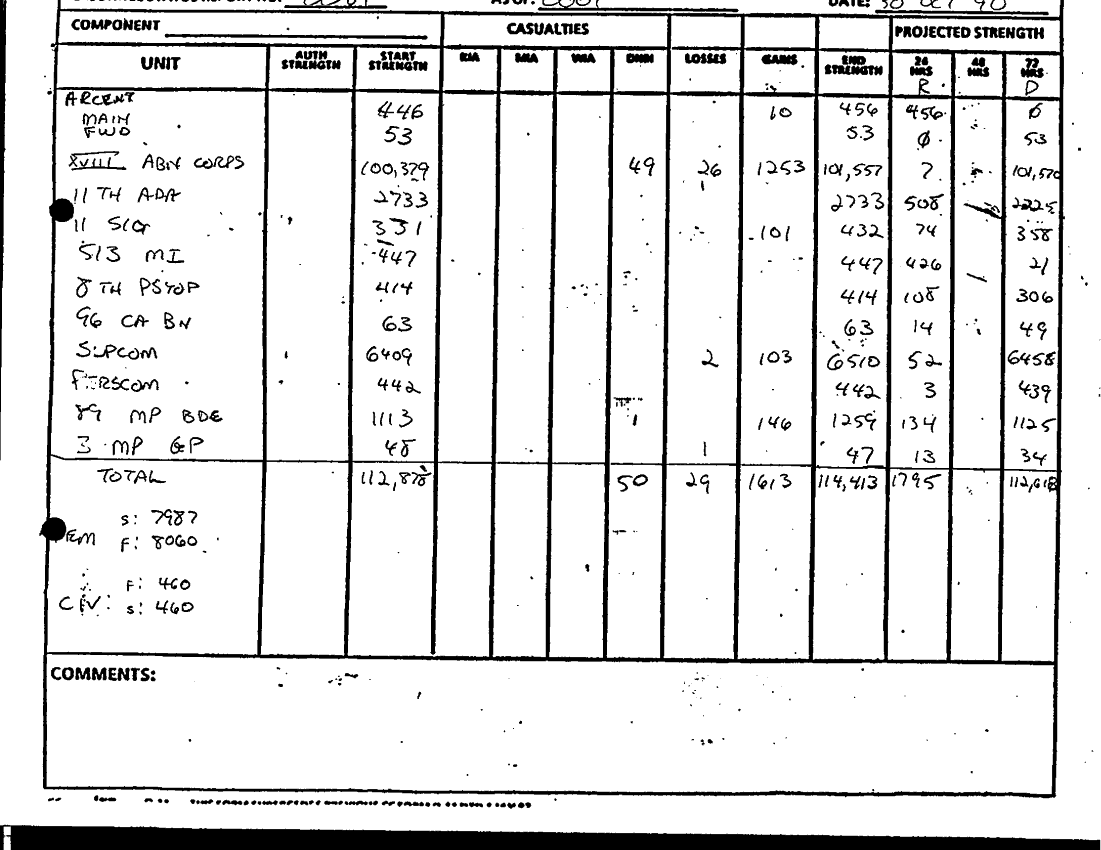 AS OF: 0001 DATE: 30 OCT 90
COMPONENT CASUALTIES PROJECTED STRENGTH
UNIT AUTH STRENGTH START STRENGTH KIA MIA WIA DNBI LOSSES GAINS END STRENGTH 24 HRS 48 HRS 72 HRS
R D
ARCENT
MAIN 446 10 456 456 0
FWD 53 53 0 53
XVIII ABN CORPS 100,379 49 26 1253 101,557 ? 101,570
11 TH ADA 2733 2733 508 2225
11 SIG 331 101 432 74 358
513 MI 447 447 426 21
8 TH PSYOP 414 414 108 306
96 CA BN 63 63 14 49
SUPCOM 6409 2 103 6510 52 6458
PERSCOM 442 442 3 439
89 MP BDE 1113 1 146 1259 134 1125
3 MP GP 48 1 47 13 34
TOTAL 112,878 50 29 1613 114,413 1795 112,618
S: 7987
FEM F: 8060
F: 460
CIV: S: 460
COMMENTS: